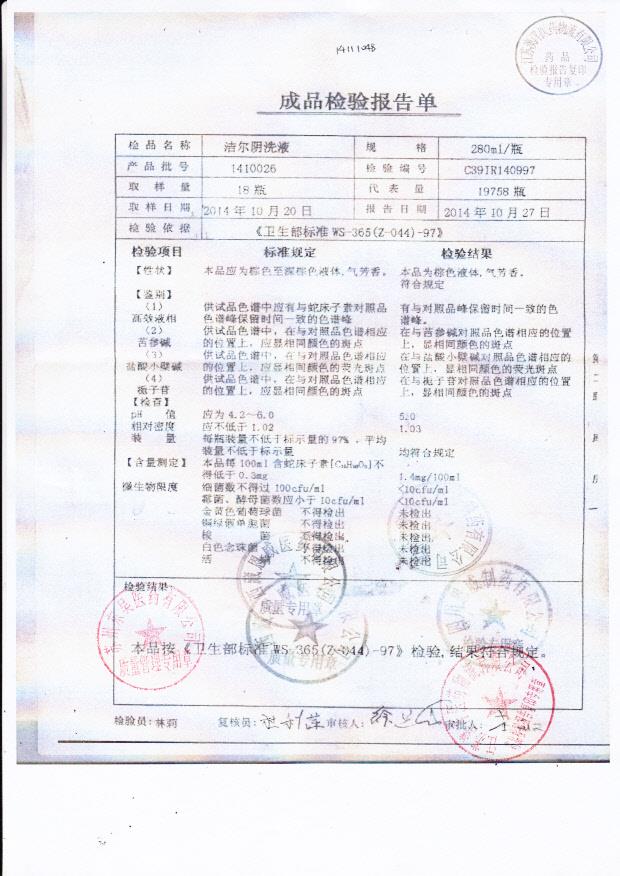 14111048
药品
检验报告复印
专用章
成品检验报告单
检品名称 洁尔阴洗液 规格 280ml/瓶
产品批号 1410026 检验编号 C39IR140997
取样量 18瓶 代表量 19758瓶
取样日期 2014年10月20日 报告日期 2014年10月27日
检验依据 《卫生部标准WS-365(Z-044)-97》
检验项目 标准规定 检验结果
【性状】 本品应为棕色至深棕色液体,气芳香。 本品为棕色液体,气芳香。
符合规定
【鉴别】
(1) 供试品色谱中应有与蛇床子素对照品 有与对照品峰保留时间一致的色
高效液相 色谱峰保留时间一致的色谱峰 谱峰。
(2) 供试品色谱中,在与对照品色谱相应 在与苦参碱对照品色谱相应的位置
苦参碱 的位置上,应显相同颜色的斑点 上,显相同颜色的斑点
(3) 供试品色谱中,在与对照品色谱相应 在与盐酸小檗碱对照品色谱相应的
盐酸小檗碱 的位置上,应显相同颜色的荧光斑点 位置上,显相同颜色的荧光斑点
(4) 供试品色谱中,在与对照品色谱相应 在与栀子苷对照品色谱相应的位置
栀子苷 的位置上,应显相同颜色的斑点 上,显相同颜色的斑点
【检查】
pH 值 应为4.2~6.0 5.0
相对密度 应不低于1.02 1.03
装量 每瓶装量不低于标示量的97%,平均
装量不低于标示量 均符合规定
【含量测定】 本品每100ml含蛇床子素[C₁₅H₁₆O₃]不
得低于0.3mg 1.4mg/100ml
微生物限度 细菌数不得过100cfu/ml <10cfu/ml
霉菌、酵母菌数应小于10cfu/ml <10cfu/ml
金黄色葡萄球菌 不得检出 未检出
铜绿假单胞菌 不得检出 未检出
梭菌 不得检出 未检出
白色念珠菌 不得检出 未检出
活 不得检出 未检出
检验结果:
本品按《卫生部标准WS-365(Z-044)-97》检验,结果符合规定。
质量专用章
质量专用章
检验专用章
检验员:林莉 复核员: 审核人: 审批人: